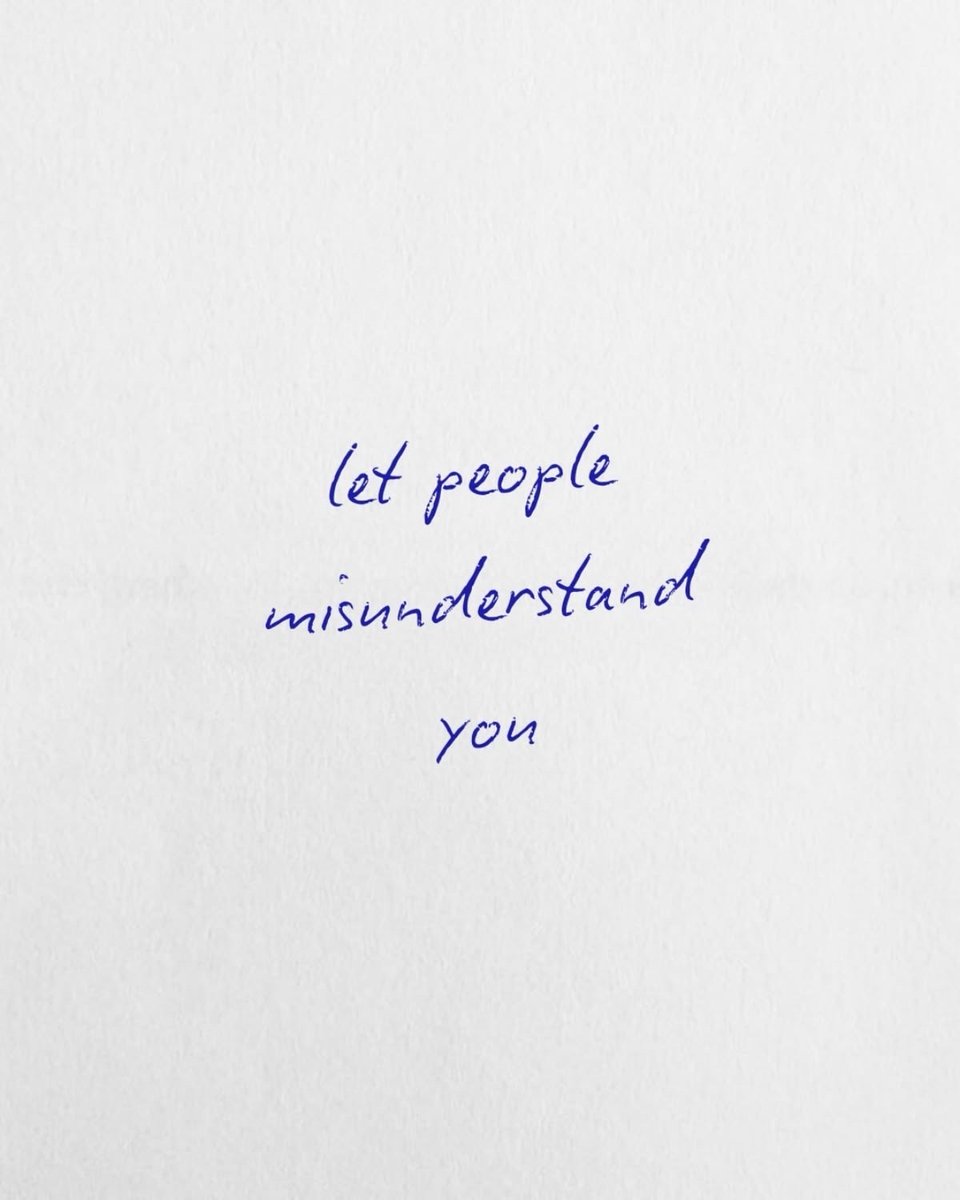 let people
misunderstand
you